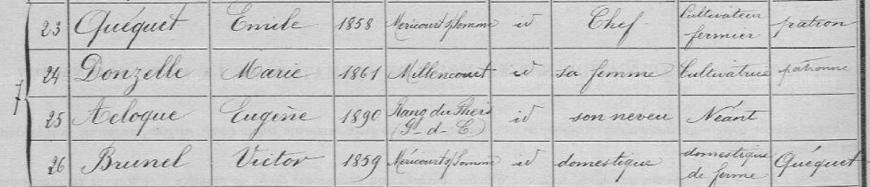 23 Quéquet Emile 1858 Méricourt s/Somme id Chef Cultivateur fermier patron
24 Donzelle Marie 1861 Millencourt id sa femme Cultivatrice patronne
25 Acloque Eugène 1890 Rang du Fliers (P-d-C.) id son neveu Néant
7
26 Brunel Victor 1859 Méricourt s/Somme id domestique domestique de ferme Quéquet